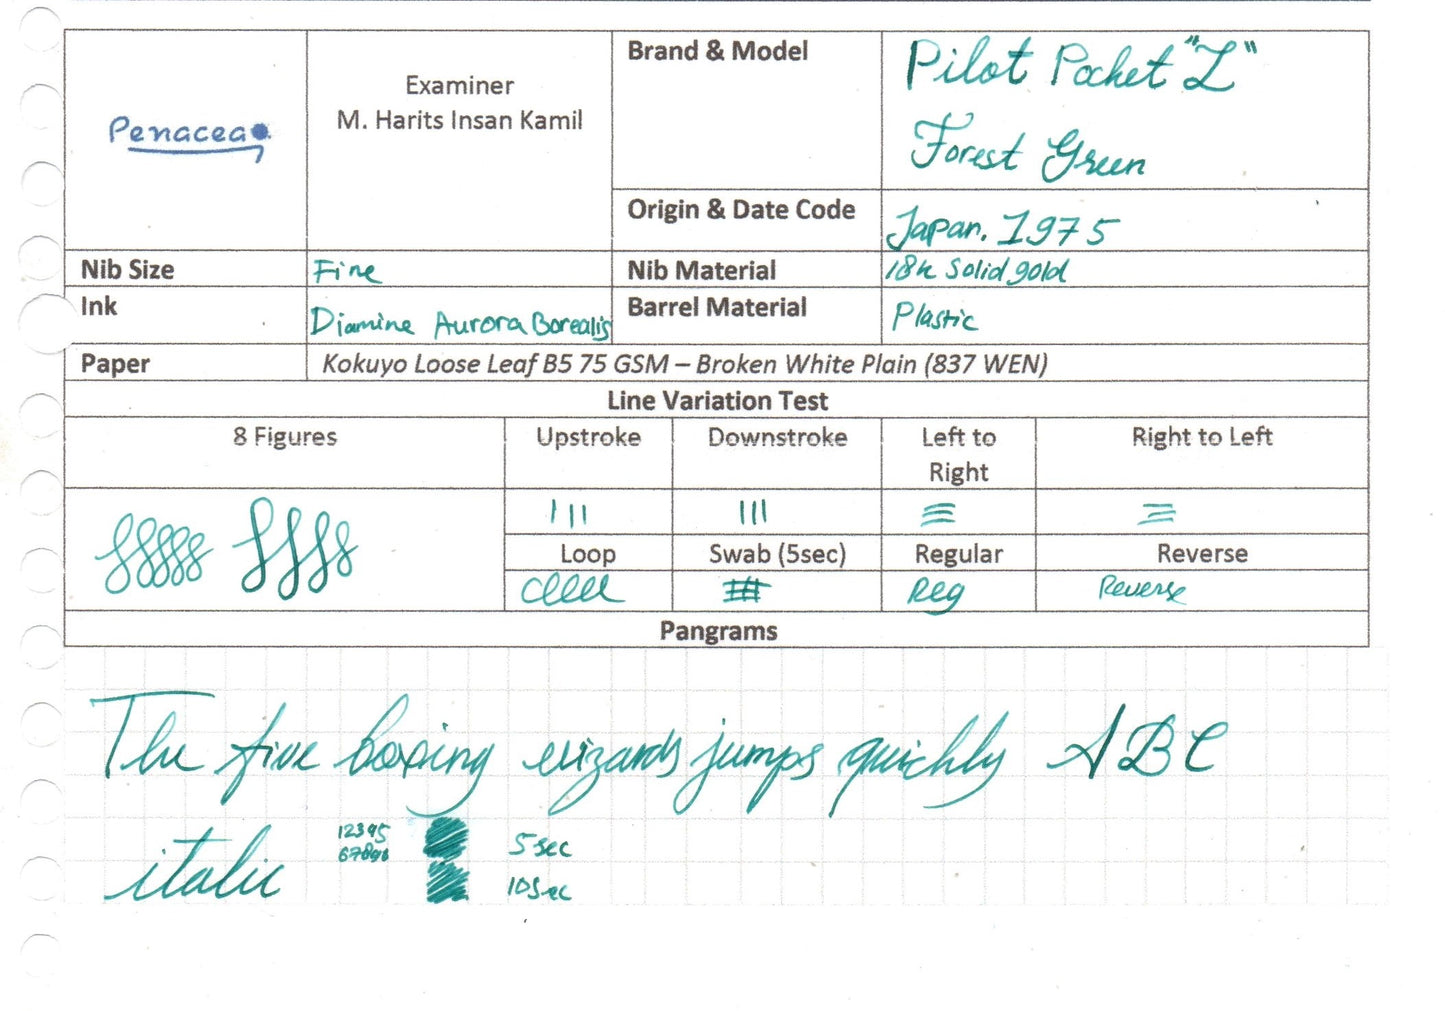 Penacea
Examiner
M. Harits Insan Kamil
Brand & Model
Pilot Pocket "L"
Forest Green
Origin & Date Code
Japan. 1975
Nib Size
Fine
Nib Material
18k Solid gold
Ink
Diamine Aurora Borealis
Barrel Material
Plastic
Paper
Kokuyo Loose Leaf B5 75 GSM – Broken White Plain (837 WEN)
Line Variation Test
8 Figures
Upstroke
Downstroke
Left to
Right
Right to Left
Loop
Swab (5sec)
Regular
Reverse
Reg
Reverse
Pangrams
The five boxing wizards jumps quickly ABC
italic
12345
67890
5 sec
10 sec